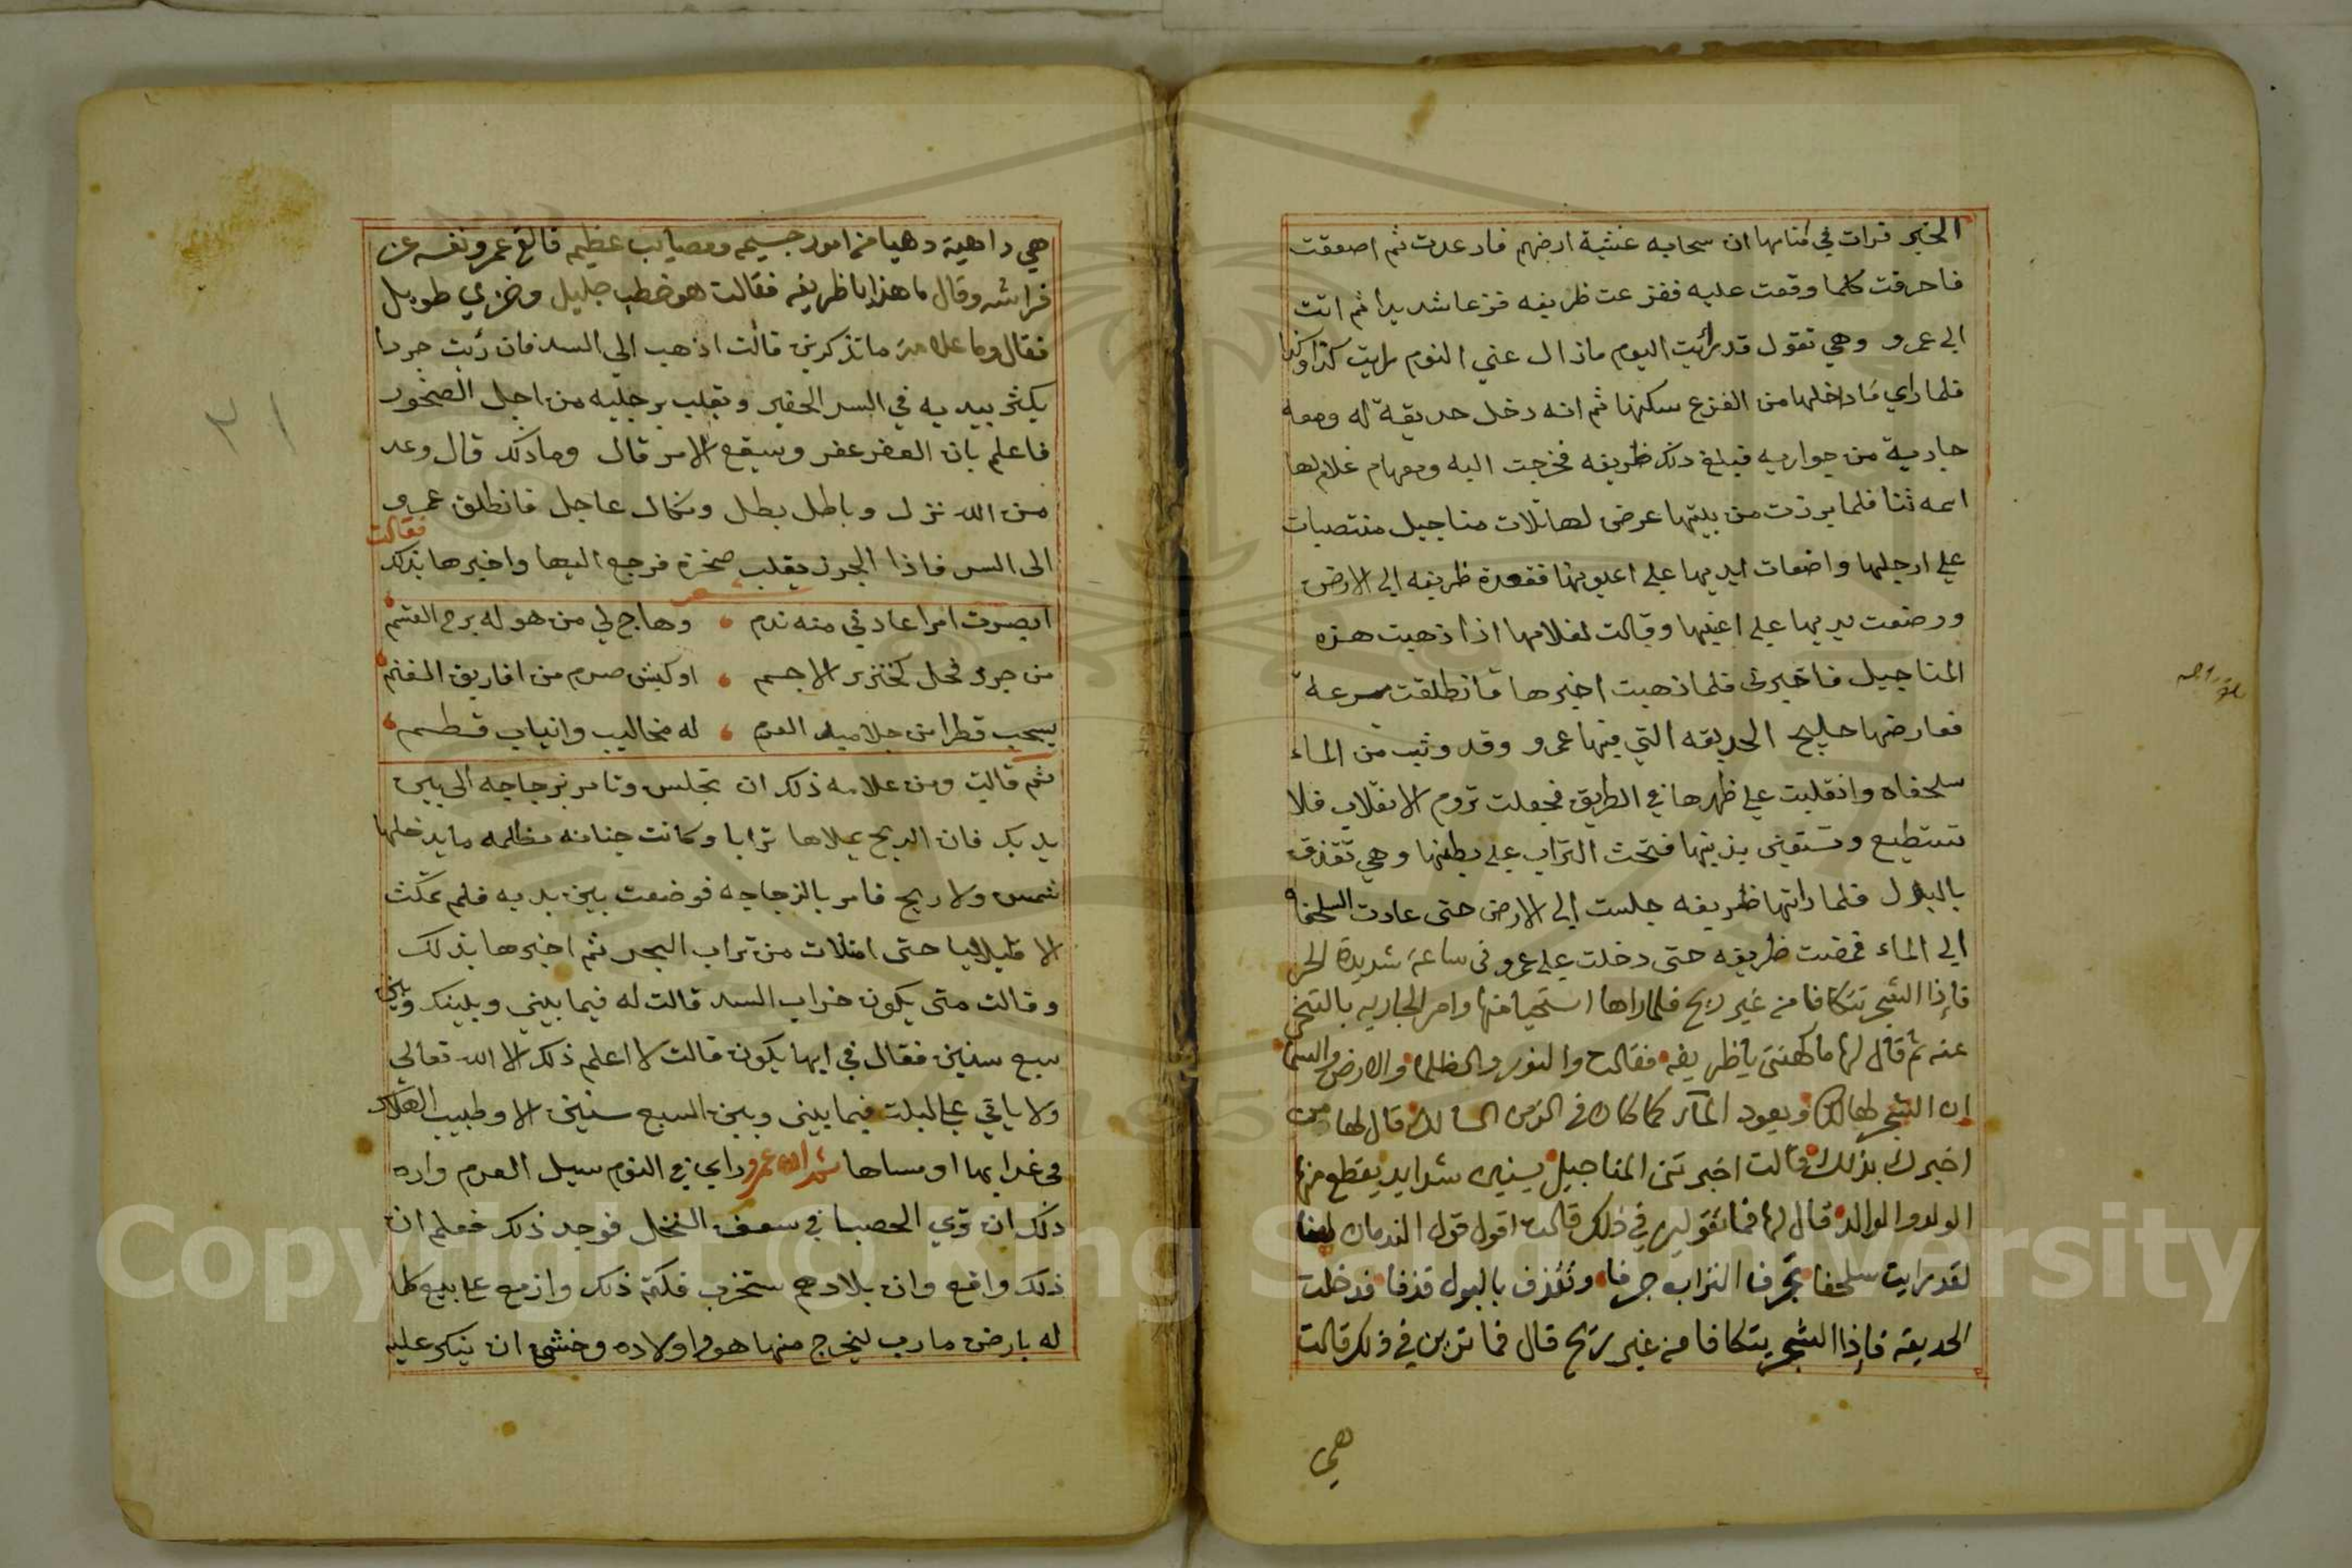 الخبر فرات في منامها ان سحابه غشية ارضهم فارعدت ثم اصعقت
فاحرقت كلما وقعت عليه ففزعت ظريفه فزعا شديدا ثم اتت
الي عمرو وهي تقول قد رايت اليوم ماذال عني النوم رايت كذا وكذا
فلما راي ما داخلها من الفزع سكنها ثم انه دخل حديقة له ومعه
جارية من جواريه فبلغ ذلك ظريفه فخرجت اليه ومعهام غلام لها
اسمه ثنا فلما برزت من بيتها عرض لها ثلاث مناجيل منتصبات
علي ارجلها واضعات ايديها علي اعينها فقعدة ظريفه الي الارض
ووضعت يديها علي اعينها وقالت لغلامها اذا ذهبت هذه
المناجيل فاخبرني فلما ذهبت اخبرها فانطلقت مسرعة
فعارضها خليج الحديقه التي فيها عمرو وقد وثبت من الماء
سلحفاه وانقلبت علي ظهرها في الطريق فجعلت تروم الانقلاب فلا
تستطيع وتستعين بذنبها فتحث التراب علي بطنها وهي تقذف
بالبول فلما راتها ظريفه جلست الي الارض حتى عادت السلحفاه
الي الماء فمضت ظريفه حتى دخلت علي عمرو في ساعة شديدة الحر
فإذا الشجر تتكافا من غير ريح فلما راها استحيا منها وامر الجاريه بالتنحي
عنه ثم قال لها ما كهنتي يا ظريفه فقالت والنور والظلما والارض والسما
ان الشجر لهالك ويعود الماء كما كان في الزمن السالك قال لها من
اخبرك بذلك قالت اخبرتني المناجيل بسنين شدايد يقطع منها
الولد والوالد قال لها فما تقولين في ذلك قالت اقول قول الندمان لهفا
لقد رايت سلحفا تجرف التراب جرفا وتقذف بالبول قذفا فدخلت
الحديقة فإذا الشجر يتكافا من غير ريح قال فما ترين في ذلك قالت
هي
هي داهية دهيا من امور جسيمه ومصايب عظيمه فالقي عمرو نفسه عن
فراشه وقال ما هذا يا ظريفه فقالت هو خطب جليل وخزي طويل
فقال وما علامة ما تذكرين قالت اذهب الي السد فان رئيت جردا
يكثر بيديه في السد الحفير ويقلب برجليه من اجل الصخور
فاعلم بان العفر عفر وسيقع الامر قال وما ذلك قال وعد
من الله نزل وباطل بطل ونكال عاجل فانطلق عمرو
الى السد فاذا الجرذ يقلب صخرة فرجع اليها واخبرها بذلك
فقالت
شعر
ابصرت امرا عادني منه ندم وهاج لي من هوله برح القسم
من جرذ فحل كخنزير الاجم او كبش صرم من افاريق الغنم
يسحب قطرا من جلاميد العرم له مخاليب وانياب قطم
ثم قالت ومن علامه ذلك ان تجلس وتامر بزجاجه الى بين
يديك فان الريح يملاها ترابا وكانت جنانه مظلمه ما يدخلها
شمس ولا ريح فامر بالزجاجه فوضعت بين يديه فلم تمكث
الا قليلا حتى امتلات من تراب البحر ثم اخبرها بذلك
وقالت متى يكون خراب السد قالت له فيما بيني وبينك وبين
سبع سنين فقال في ايها يكون قالت لا اعلم ذلك الا الله تعالي
ولا ياتي علي ليلة فيما بيني وبين السبع سنين الا وطبيب الهلاك
في غدايها او مساها ثم ان عمرو راي في النوم سيل العرم واره
ذلك ان تري الحصبا في سعف النخل فوجد ذلك فعلم ان
ذلك واقع وان بلادهم ستخرب فكتم ذلك وازمع علي بيع كلما
له بارض مارب ليخرج منها هو واولاده وخشي ان ينكر عليه
Copyright © King Saud University
1957